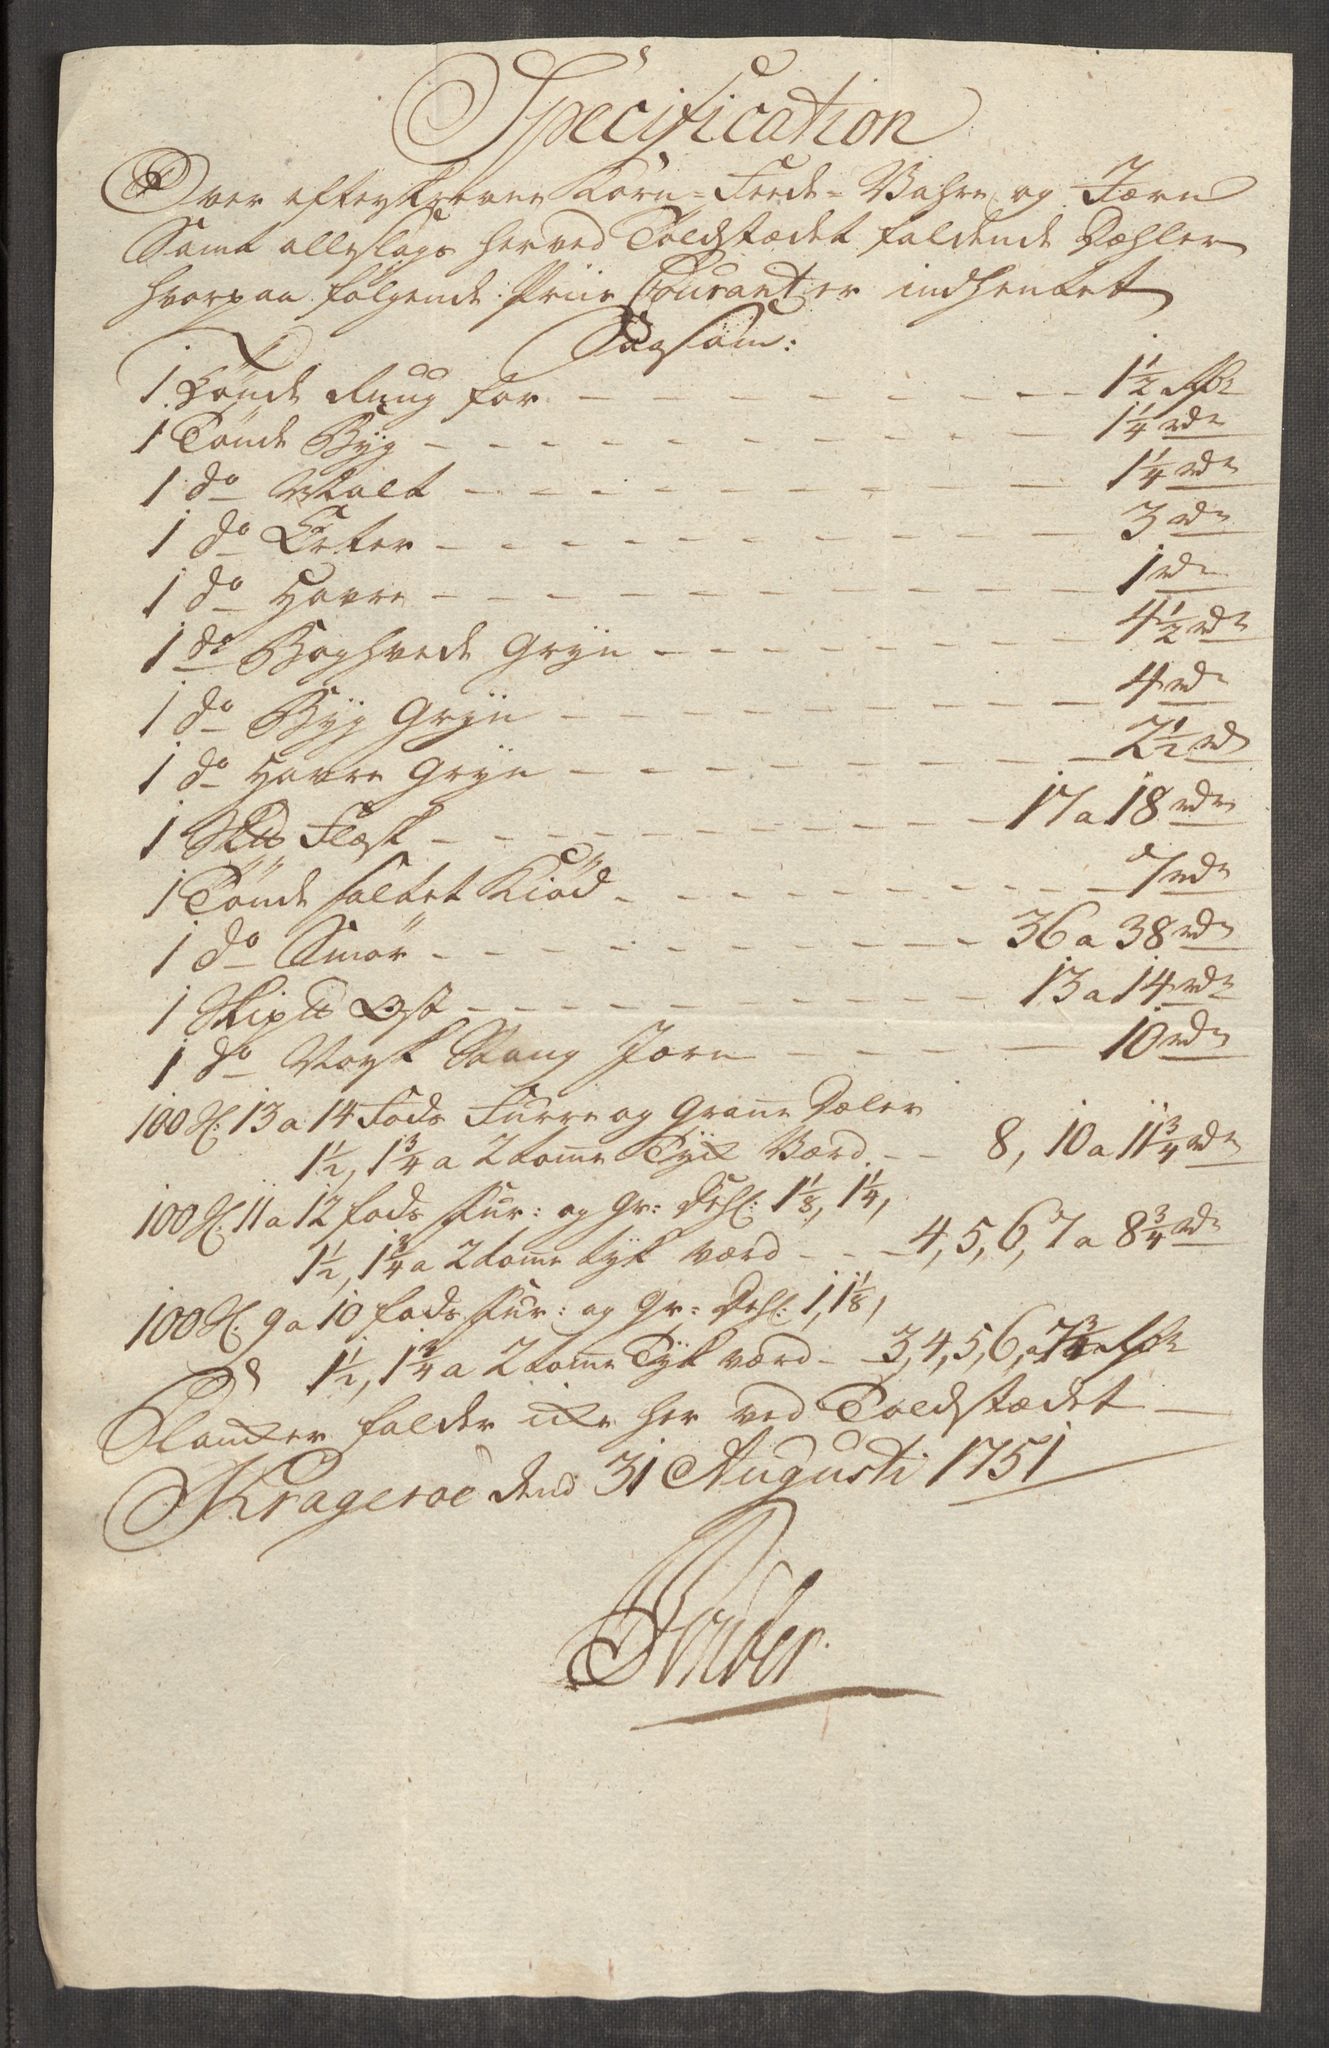 Specification
Over efterskrevne Korn- Feede- Vahre og Jærn
Samt alleslags herved Toldstædet faldende Dæhler
hvorpaa følgende Priis Couranter indhentet
Saasom:
1 Tønde Ruug for - - - 1½ Rdr
1 Tønde Byg - - - 1¼ rdr
1 do Malt - - - 1¼ rdr
1 do Erter - - - 3 rdr
1 do Havre - - - 1 rdr
1 do Boghvede Gryn - - - 4½ rdr
1 do Byg Gryn - - - 4 rdr
1 do Havre Gryn - - - 2½ rd
1 Sk℔ Flesk - - - 17 a 18 rdr
1 Tønde saltet Kiød - - - 7 rdr
1 do Smør - - - 36 a 38 rdr
1 Skip℔ Ost - - - 13 a 14 rdr
1 do Norsk Stang Jern - - - 10 rdr
100 St: 13 a 14 Fods Furre og Grann Dæler
1½, 1¾ a 2 tomme Tyk Værd - - 8, 10 a 11¾ rdr
100 St: 11 a 12 fods Fur: og Gr: Dehl: 1⅛, 1¼,
1½, 1¾ a 2 tomme tyk værd - - - 4, 5, 6, 7 a 8¾ rdr
100 St: 9 a 10 fods Fur: og Gr: Dehl: 1, 1⅛,
1½, 1¾ a 2 tomme Tyk værd - 3, 4, 5, 6, a 7¾ Rdr
Planker falder ikke her ved Toldstædet
Krageroe dend 31 Augusti 1751